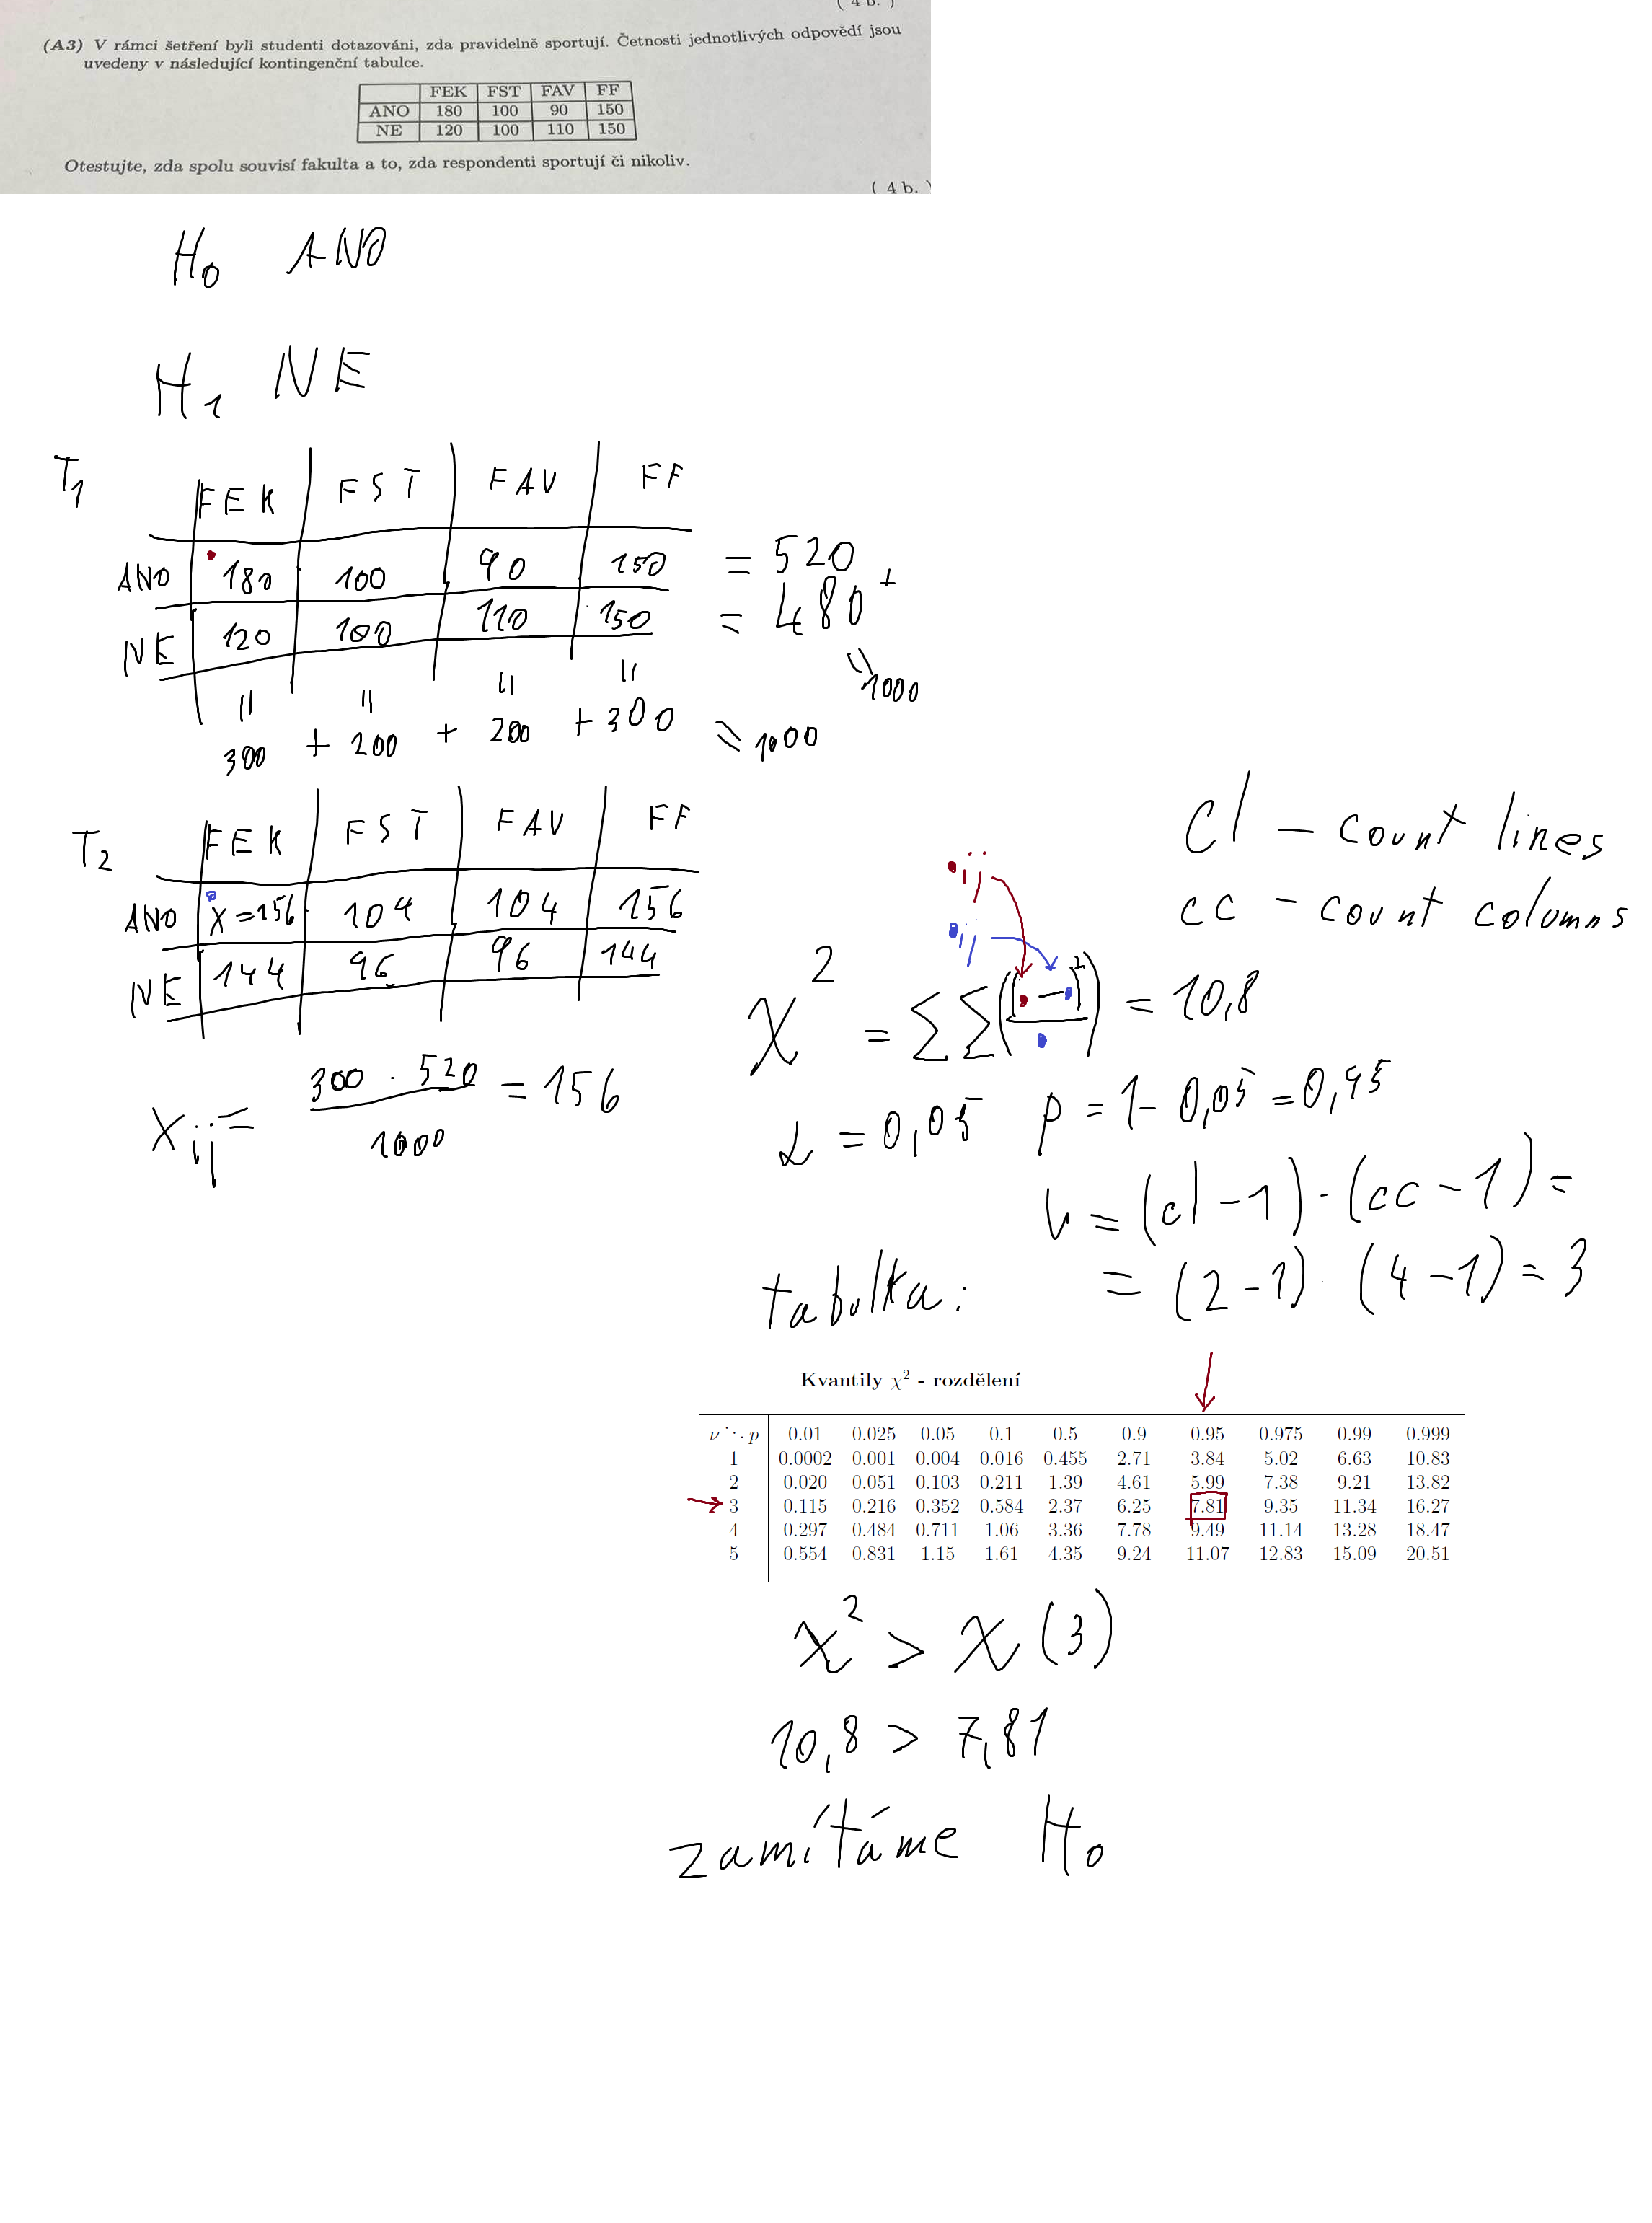 ( 4 b. )
(A3) V rámci šetření byli studenti dotazováni, zda pravidelně sportují. Četnosti jednotlivých odpovědí jsou
uvedeny v následující kontingenční tabulce.
FEK FST FAV FF
ANO 180 100 90 150
NE 120 100 110 150
Otestujte, zda spolu souvisí fakulta a to, zda respondenti sportují či nikoliv.
( 4 b. )
H₀ ANO
H₁ NE
T₁ FEK FST FAV FF
ANO 180 100 90 150 = 520 +
NE 120 100 110 150 = 480
|| || || || || 1000
300 + 200 + 200 + 300 = 1000
T₂ FEK FST FAV FF
ANO X=156 104 104 156
NE 144 96 96 144
Xij = 300 · 520 / 1000 = 156
cl – count lines
cc – count columns
•ij
•ij
χ² = ΣΣ((• – •)² / •) = 10,8
α = 0,05 p = 1 - 0,05 = 0,95
ν = (cl - 1) · (cc - 1) =
= (2 - 1) · (4 - 1) = 3
tabulka:
Kvantily χ² - rozdělení
ν ⋱ p 0.01 0.025 0.05 0.1 0.5 0.9 0.95 0.975 0.99 0.999
1 0.0002 0.001 0.004 0.016 0.455 2.71 3.84 5.02 6.63 10.83
2 0.020 0.051 0.103 0.211 1.39 4.61 5.99 7.38 9.21 13.82
3 0.115 0.216 0.352 0.584 2.37 6.25 7.81 9.35 11.34 16.27
4 0.297 0.484 0.711 1.06 3.36 7.78 9.49 11.14 13.28 18.47
5 0.554 0.831 1.15 1.61 4.35 9.24 11.07 12.83 15.09 20.51
χ² > χ (3)
10,8 > 7,81
zamítáme H₀